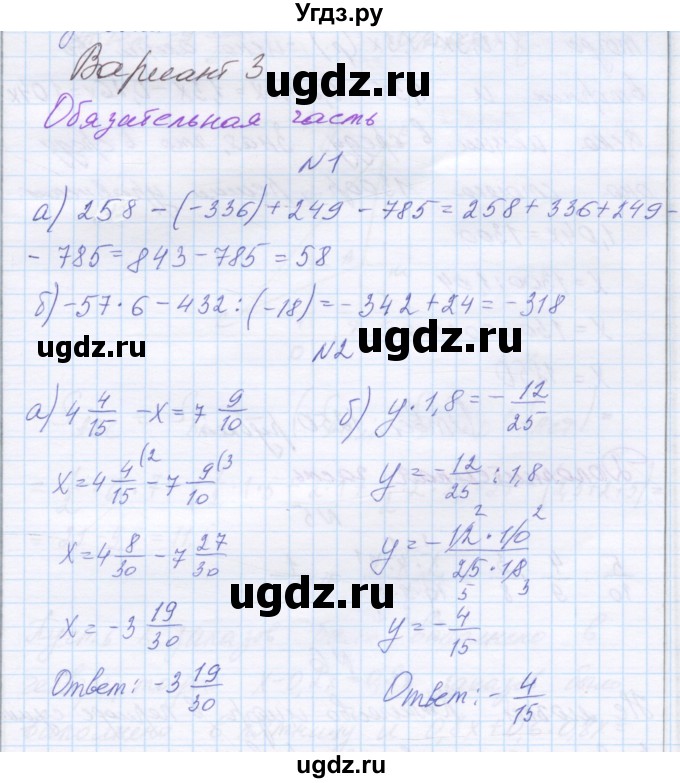 Угдз.ру
Вариант 3
ugdz.ru
Обязательная часть
ugdz.ru
N1
а) 258 - (-336) + 249 - 785 = 258 + 336 + 249 -
- 785 = 843 - 785 = 58
б) -57·6 - 432 : (-18) = -342 + 24 = -318
ugdz.ru
N2
ugdz.ru
а) 4 4/15 - x = 7 9/10
x = 4 4/15 (2 - 7 9/10 (3
x = 4 8/30 - 7 27/30
x = -3 19/30
Ответ: -3 19/30
б) y·1,8 = - 12/25
y = - 12/25 : 1,8
y = - 12·10/25·18
2 2
5 3
y = - 4/15
Ответ: - 4/15
ugdz.ru
ugdz.ru
ugdz.ru
ugdz.ru